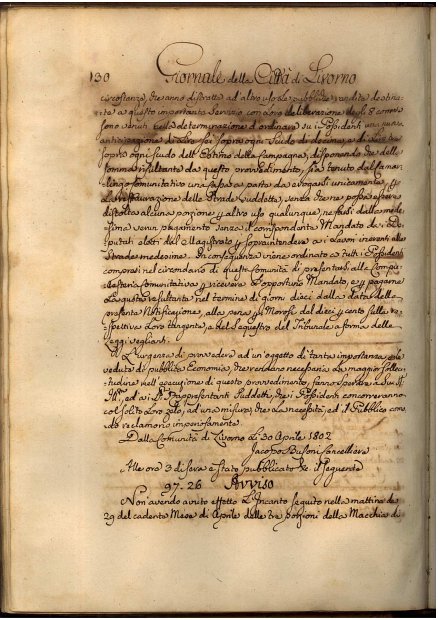 130 Giornale della Città di Livorno
circostanza, che anno distratte ad altro uso le pubbliche rendite destina-
te a questo importante servizio con loro deliberazione degli 8 corre
sono venuti nella determinazione d'ordinare su i Possidenti una
anticipazione di Lire sei sopra ogni Scudo di decima, e di Lire
sopra ogni scudo dell'Estimo della Campagna, disponendo che della
somma resultante da questo provvedimento, sia tenuto dal Camar-
lingo Comunitativo una Cassa a parte da erogarsi unicamente per
la restaurazione delle Strade suddette, senza che ne possa essere
distolta alcuna porzione per altro uso qualunque, ne farsi dalla mede-
sima verun pagamento senza il corrispondente Mandato da De-
putati eletti dal Magistrato per soprintendere ai Lavori inerenti alle
Strade medesime. In conseguenza viene ordinato a tutti i Possidenti
compresi nel circondario di questa Comunità di presentarsi alla Cancel-
leria Comunitativa per ricevere l'opportuno Mandato, e per pagarne
la quota resultante nel termine di giorni dieci dalla data della
presente Notificazione, alla pena per i Morosi del dieci per cento sulla re-
spettiva loro tangente, e del sequestro del Tribunale a forma delle
veglianti.
E l'urgenza di provvedere ad un'oggetto di tanta importanza, e le
vedute di pubblica Economia, che rendano necessaria la maggior solleci-
tudine nell'esecuzione di questo provvedimento, fanno sperare a
Ill. ed ai Rappresentanti suddetti, che i Possidenti concorreranno
col solito loro zelo, ad una misura, che la necessità, ed il Pubblico como-
do reclamano imperiosamente.
Dalla Comunità di Livorno Li 30 Aprile 1802
Jacopo Busoni Cancelliere
Alle ore 3 di sera è stato pubblicato il seguente
97.26 Avviso
Non avendo avuto effetto l'Incanto seguito nella mattina de
29 del cadente Mese di Aprile delle tre porzioni della Macchia di